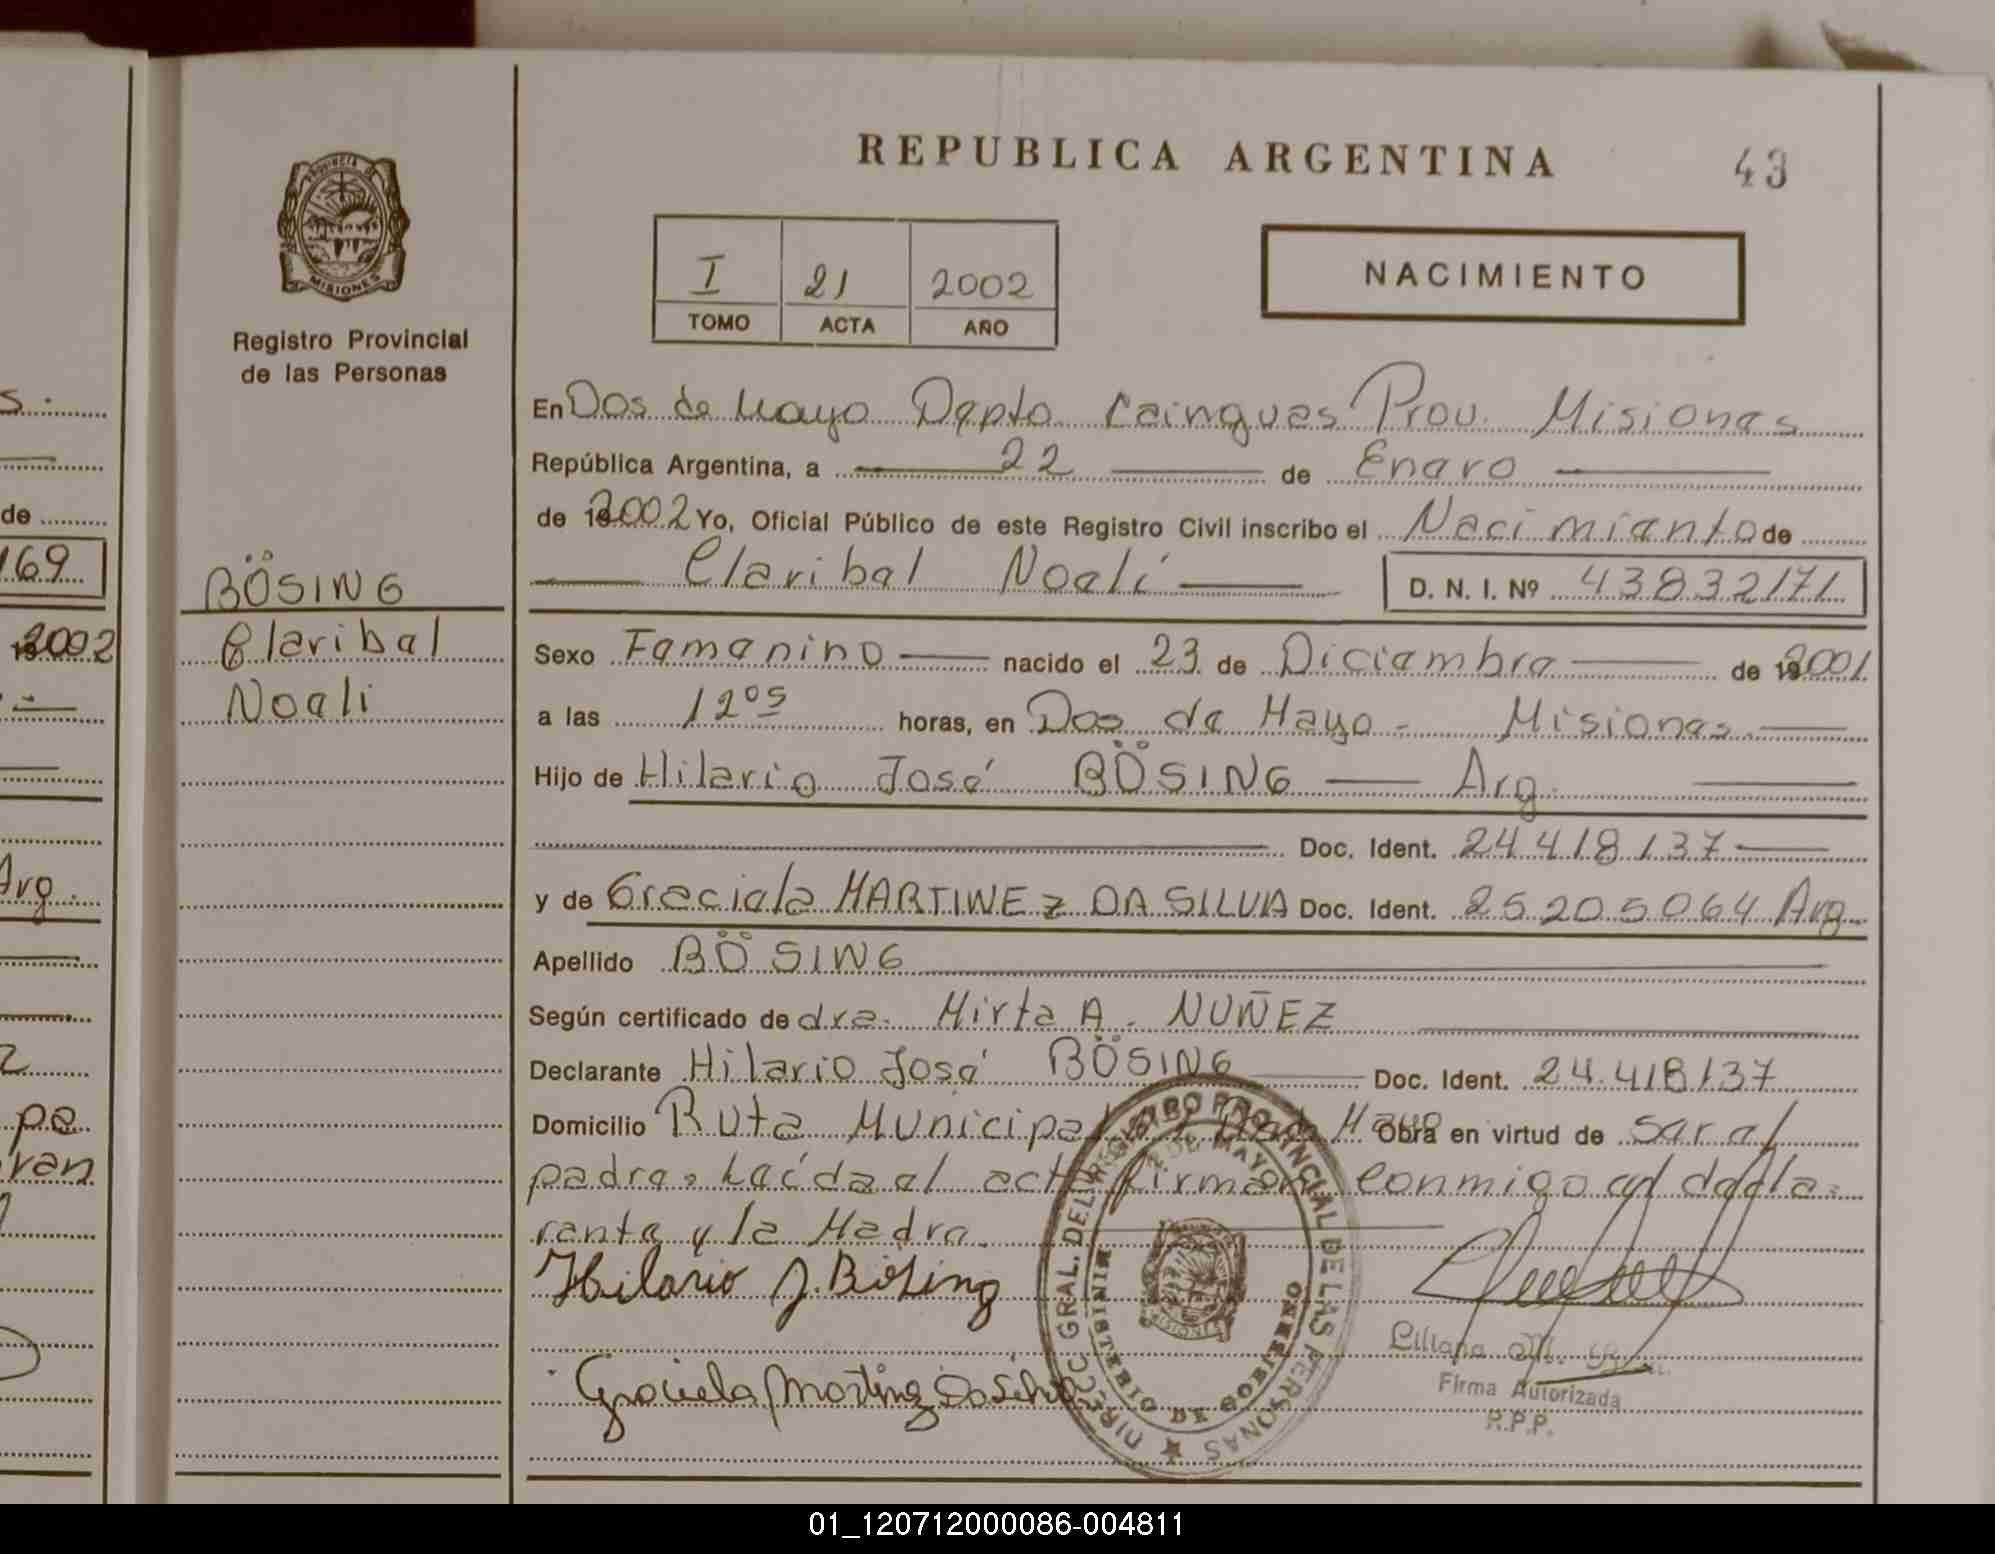 REPUBLICA ARGENTINA
43
PROVINCIA DE
MISIONES
Registro Provincial
de las Personas
I 21 2002
TOMO ACTA AÑO
NACIMIENTO
En Dos de Mayo Depto Cainguas Prov. Misiones
República Argentina, a 22 de Enero
de 192002 Yo, Oficial Público de este Registro Civil inscribo el Nacimiento de
Claribel Noelí D. N. I. Nº 43832171
BÖSING
Claribel
Noeli
Sexo Femenino nacido el 23 de Diciembre de 192001
a las 12 05 horas, en Dos de Mayo - Misiones.
Hijo de Hilario José BÖSING Arg.
Doc. Ident. 24.418.137
y de Graciela MARTINEZ DA SILVA Doc. Ident. 25205064 Arg.
Apellido BÖSING
Según certificado de dra. Mirta A. NUÑEZ
Declarante Hilario José BÖSING Doc. Ident. 24.418137
Domicilio Ruta Municipal Dos Mayo Obra en virtud de ser el
padre. Leída el acta firman conmigo el decla-
rante y la Madre.
Hilario J. Bösing
Graciela Martinez Da Silva
DIRECC. GRAL. DEL REGISTRO PROVINCIAL DE LAS PERSONAS
MINISTERIO DE GOBIERNO
DE MAYO
Liliana M.
Firma Autorizada
R.P.P.
s.
de
169
192002
Arg.
pe
ran
01_120712000086-004811